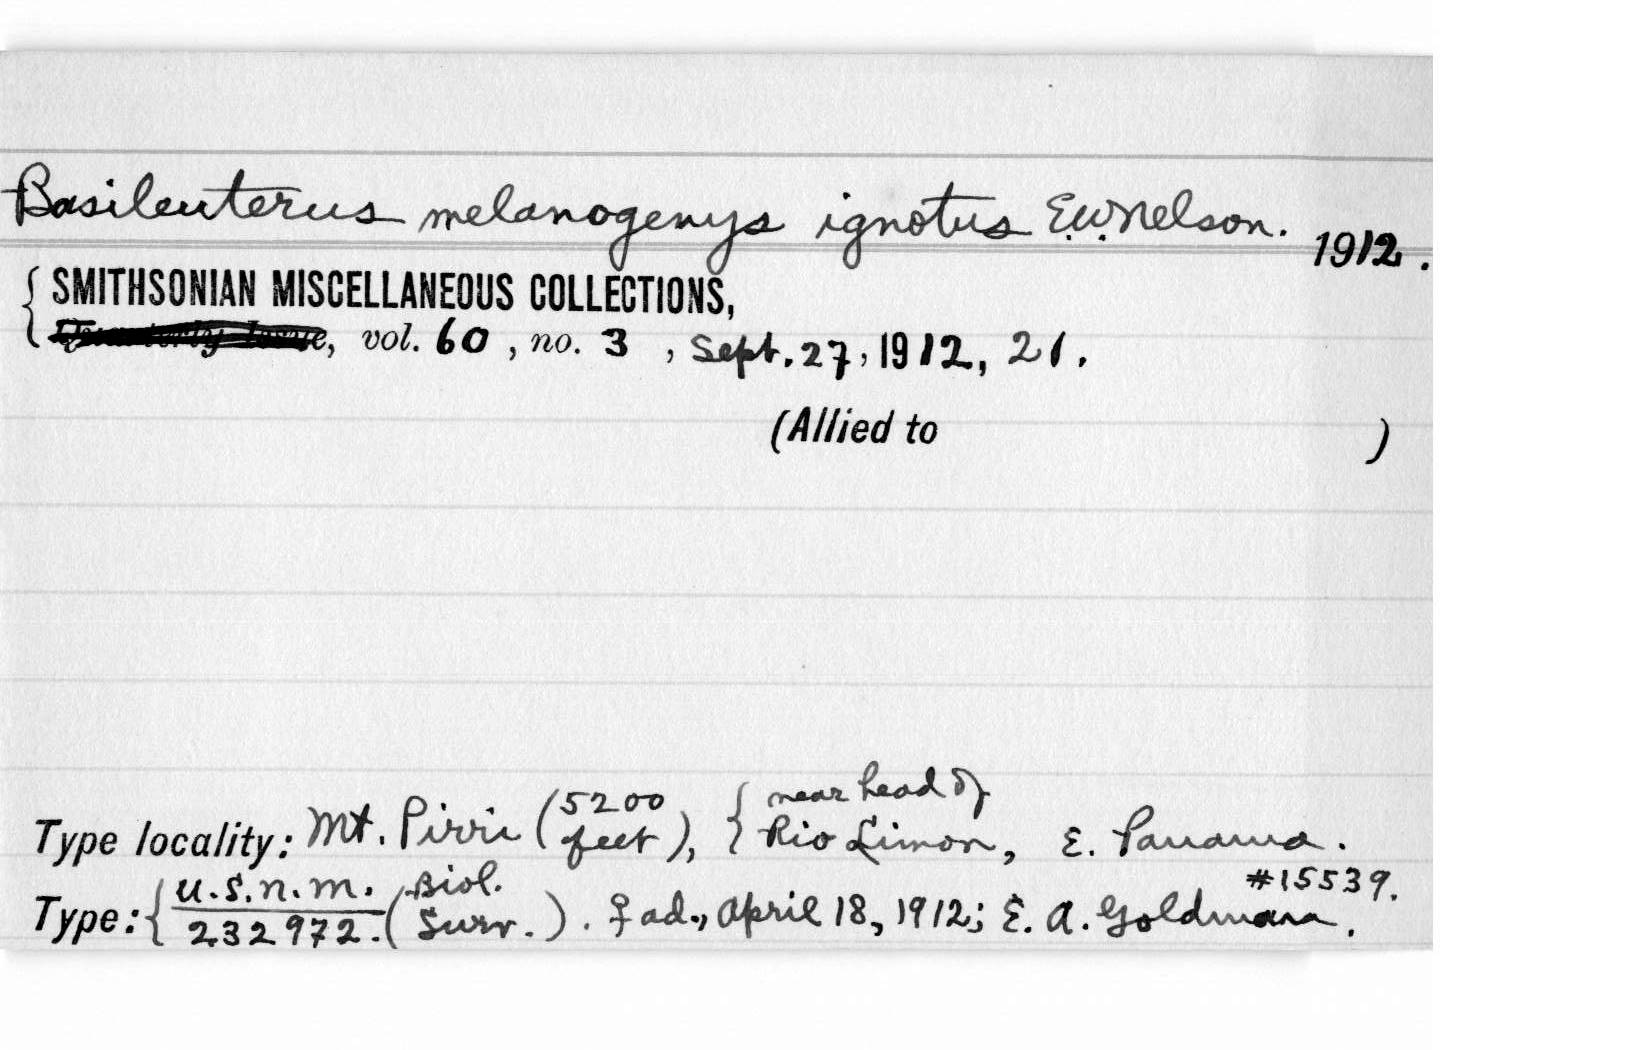 Basileuterus melanogenys ignotus E.W. Nelson. 1912.
{ SMITHSONIAN MISCELLANEOUS COLLECTIONS,
Quarterly Issue, vol. 60, no. 3, Sept. 27, 1912, 21.
(Allied to )
near head of
Type locality: Mt. Pirri (5200 feet), { Rio Limon, E. Panama.
#15539.
Type: { U.S.N.M. 232972. (Biol. Surv.). ♀ ad., April 18, 1912; E. A. Goldman.